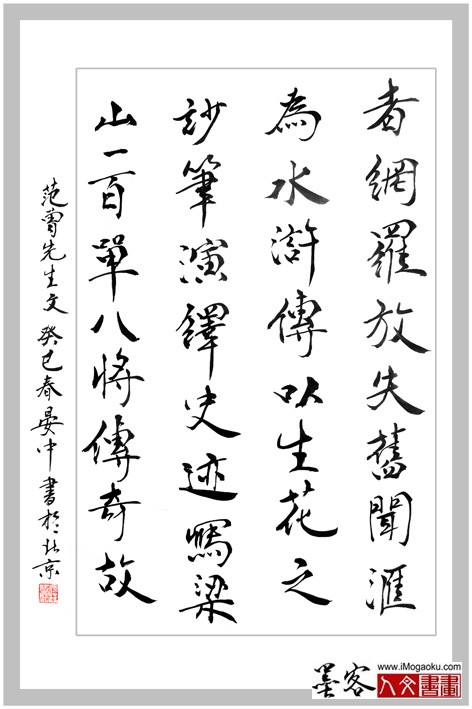 者網羅放失舊聞滙
為水滸傳以生花之
妙筆演繹史迹寫梁
山一百單八將傳奇故
范曾先生文 癸巳春晏中書於北京
墨客
www.iMogaoku.com
人文書畫